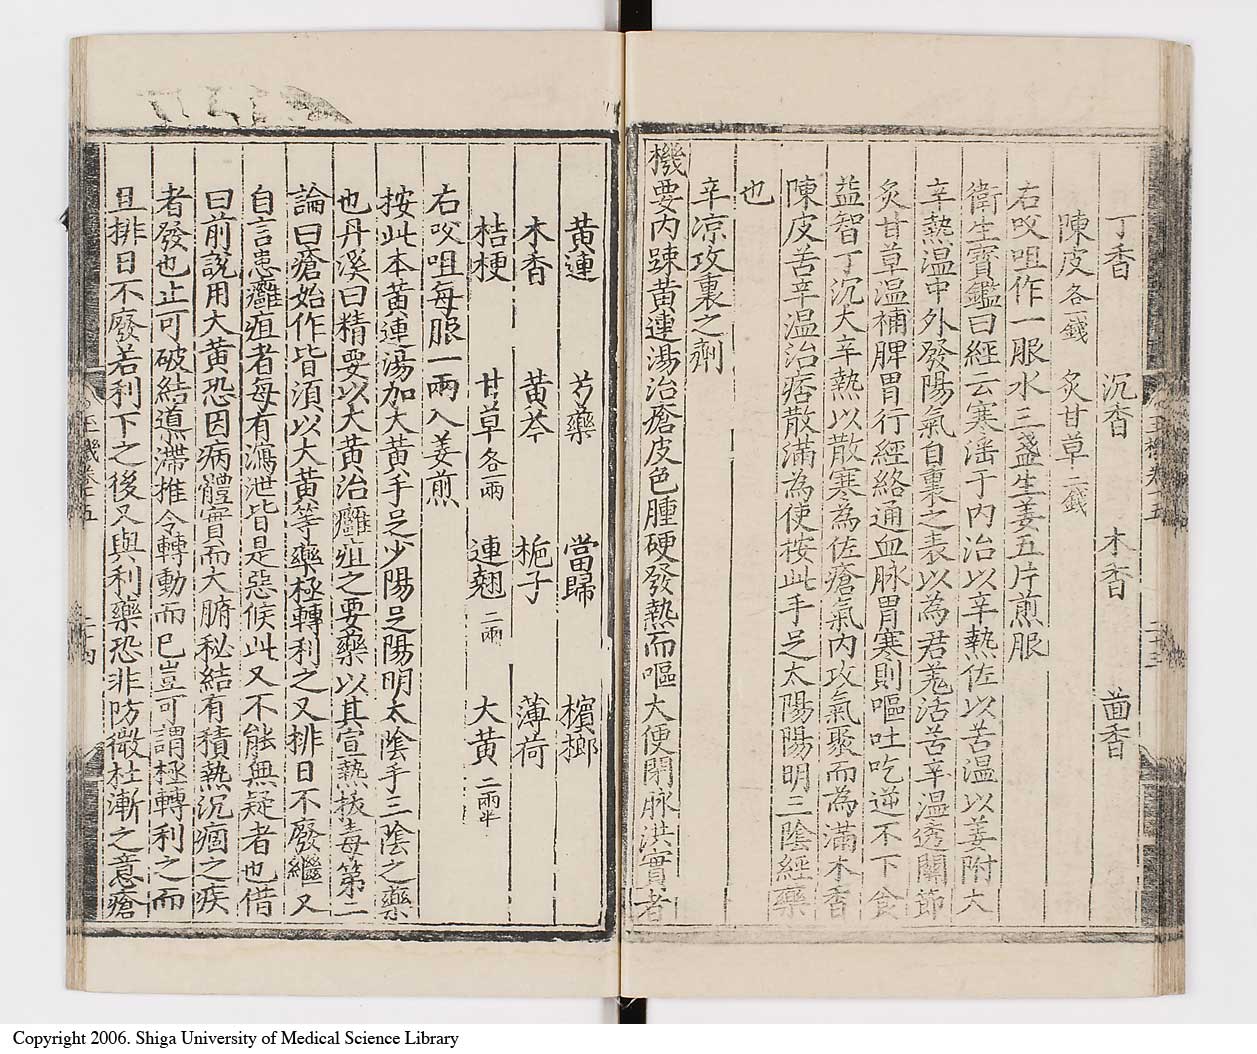 丁香　沉香　木香　茴香
陳皮各一錢　炙甘草二錢
右㕮咀作一服水三盞生姜五片煎服
衛生寶鑑曰經云寒滛于内治以辛熱佐以苦溫以姜附大
辛熱溫中外發陽氣自裏之表以為君羌活苦辛溫透關節
炙甘草溫補脾胃行經絡通血脉胃寒則嘔吐吃逆不下食
益智丁沉大辛熱以散寒為佐瘡氣内攻氣聚而為滿木香
陳皮苦辛溫治痞散滿為使按此手足太陽陽明三陰經藥
也
辛凉攻裏之劑
機要内踈黃連湯治瘡皮色腫硬發熱而嘔大便閉脉洪實者
黃連　芍藥　當歸　檳榔
木香　黃芩　梔子　薄荷
桔梗　甘草各一兩　連翹二兩　大黃二兩半
右㕮咀每服一兩入姜煎
按此本黃連湯加大黃手足少陽足陽明太陰手三陰之藥
也丹溪曰精要以大黃治癰疽之要藥以其宣熱拔毒第二
論曰瘡始作皆須以大黃等藥極轉利之又排日不廢繼又
自言患癰疽者每有瀉泄皆是惡候此又不能無疑者也借
曰前說用大黃恐因病體實而大腑秘結有積熱沉痼之疾
者發也止可破結導滯推令轉動而已豈可謂極轉利之而
且排日不廢若利下之後又與利藥恐非防微杜漸之意瘡
玉機卷十五
二十四